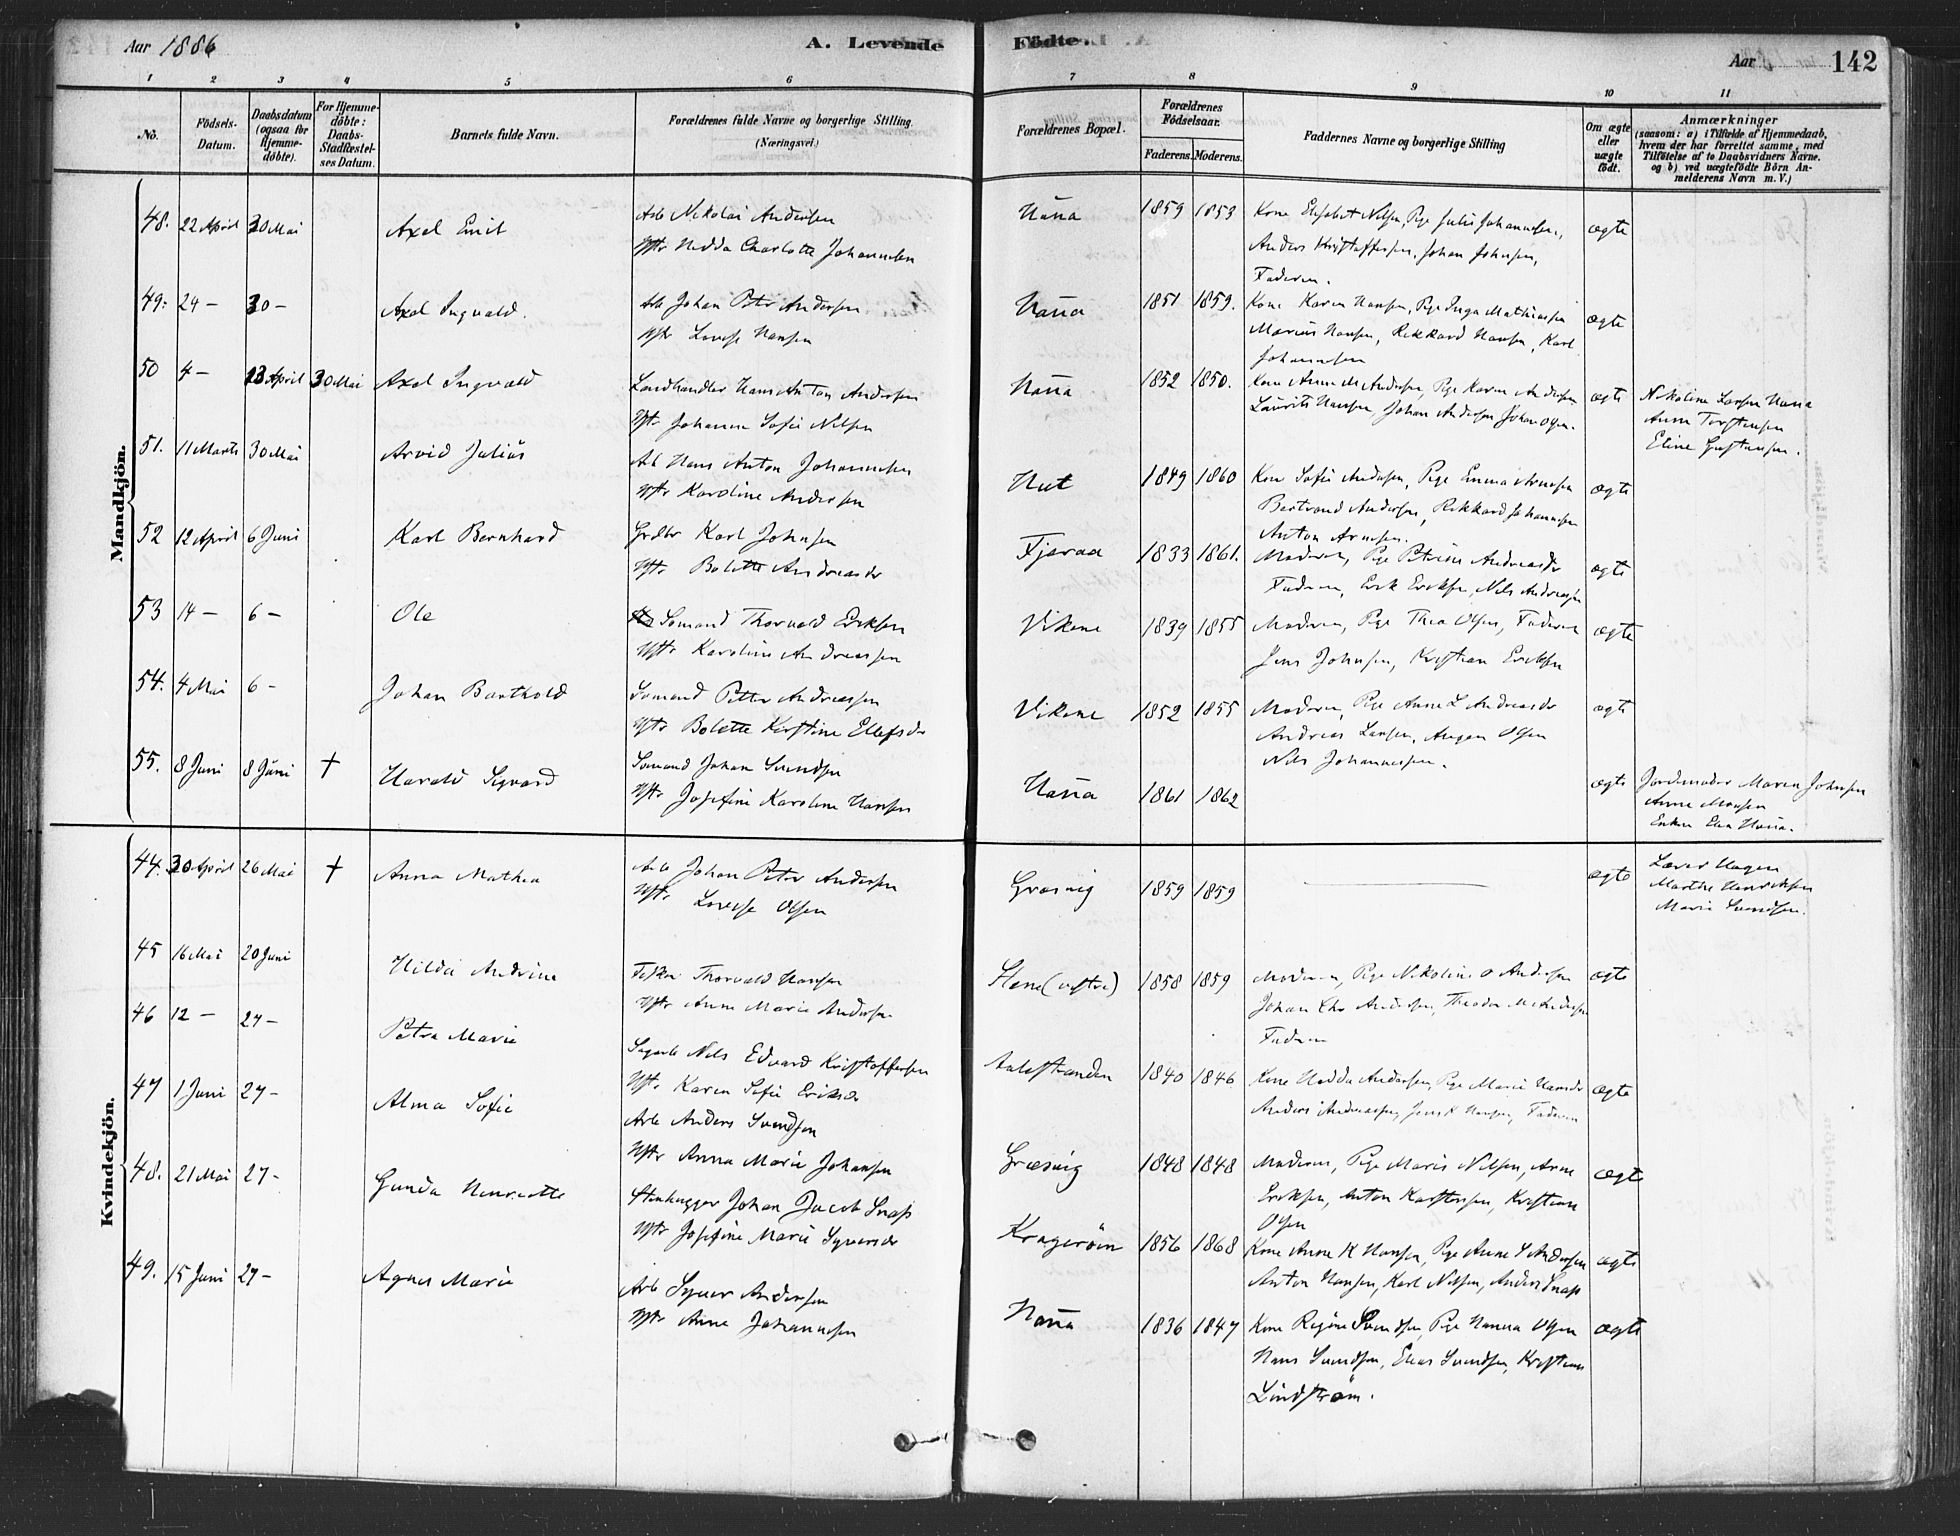 Aar 1886
A. Levende
Födte.
Aar
142
1 2 3 4 5 6 7 8 9 10 11
No.
Födsels-
Datum.
Daabsdatum
(ogsaa for
Hjemme-
döbte).
For Hjemme-
döbte:
Daabs-
Stadfæstel-
ses Datum.
Barnets fulde Navn.
Forældrenes fulde Navne og borgerlige Stilling.
(Næringsvei.)
Forældrenes Bopæl.
Forældrenes
Födselsaar.
Faderens. Moderens.
Faddernes Navne og borgerlige Stilling
Om ægte
eller
uægte
födt.
Anmærkninger
(saasom: a) i Tilfælde af Hjemmedaab,
hvem der har forrettet samme, med
Tilföielse af to Daabsvidners Navne.
og b) ved uægtefödte Börn An-
melderens Navn m. V.)
Mandkjön.
48. 22 April 30 Mai Axel Emil
Arb Nikolai Andersen
Hstr Hedda Charlotte Johannesen
Hauia 1859 1853
Kone Elisabet Nilsen, Pige Julie Johannesen,
Anders Kristoffersen, Johan Johnsen,
Faderen.
ægte
49. 24 – 30 – Axel Ingvald.
Arb Johan Peter Andersen
Hstr Lovise Hansen
Hauia 1851 1859.
Kone Karen Hansen, Pige Inga Mathiasen
Marius Hansen, Rikkard Hansen, Karl
Johannesen
ægte
50 4 – 23 April 30 Mai Axel Ingvald
Landhandler Hans Anton Andersen
Hstr Johanne Sofie Nilsen
Hauia 1852 1850.
Kone Anne M Andersen, Pige Karen Andersen
Laurits Hansen, Johan Andersen Johan Olsen.
ægte
Nikoline Larsen Hauia
Anne Torstensen
Eline Gustavsen.
51. 11 Marts 30 Mai Arvid Julius
Arb Hans Anton Johannesen
Hstr Karoline Andersen
Hut 1849 1860
Kone Sofie Andersen, Pige Emma Arnesen
Bertrand Andersen, Rikkard Johannesen
Anton Arnesen.
ægte
52 12 April 6 Juni Karl Bernhard
Grdbr Karl Johnsen
Hstr Bolette Andreasdr
Fjeraa 1833 1861.
Moderen, Pige Petrine Andreasdr
Faderen, Erik Eriksen, Nils Andreasen
ægte
53 14 – 6 – Ole
Sömand Thorvald Eriksen
Hstr Karoline Andreassen
Vikene 1839 1855
Moderen, Pige Thea Olsen, Faderen
Jens Johnsen, Kristian Eriksen
ægte
54. 4 Mai 6 – Johan Barthold
Sömand Petter Andreassen
Hstr Bolette Kirstine Ellefsdr
Vikene 1852 1855
Moderen, Pige Anne L Andreasdr
Andreas Larsen, Olsen
Nils Johannessen.
ægte
55. 8 Juni 8 Juni † Harald Sigvard
Sömand Johan Svendsen
Hstr Josefine Karoline Hansen
Hauia 1861 1862
ægte
Jordemoder Maren Johnsen
Anne Monsen
Enken Elen Hauia.
Kvindekjön.
44. 30 April 26 Mai † Anna Mathea
Arb Johan Peter Andersen
Hstr Lovise Olsen
Græsvig 1859 1859
ægte
Lærer Hagen
Marthe Henriksen
Marie Svendsen.
45 16 Mai 20 Juni Hilda Andrine
Fisker Thorvald Hansen
Hstr Anne Marie Andersen
Stene (vestre) 1858 1859
Moderen, Pige Nikoline O Andersen
Johan Chr Andersen, Theodor M Andersen
Faderen
ægte
46 12 – 27 – Petra Marie
Sagarb Nils Edvard Kristoffersen
Hstr Karen Sofie Eriksdr
Aalestranden 1840 1846
Kone Hedda Andersen, Pige Marie Hansdr
Anders Andreassen, Jens K Hansen, Faderen
ægte
47 1 Juni 27 – Alma Sofie
Arb Anders Svendsen
Hstr Anna Marie Johansen
Græsvig 1848 1848
Moderen, Pige Maris Nilsen, Arne
Eriksen, Anton Karstensen, Kristian
Olsen
ægte
48. 21 Mai 27 – Gunda Henriette
Stenhugger Johan Jacob Snaps
Hstr Josefine Marie Syversdr
Krageröen 1856 1868
Kone Anne K Hansen, Pige Anne S Andersen
Anton Hansen, Karl Nilsen, Anders Snaps
ægte
49. 15 Juni 27 – Agnes Marie
Arb Syver Andersen
Hstr Anne Johannesen
Hauia 1836 1847
Kone Regine Svendsen, Pige Hanna Olsen
Hans Svendsen, Elias Svendsen, Kristian
Lindström.
ægte